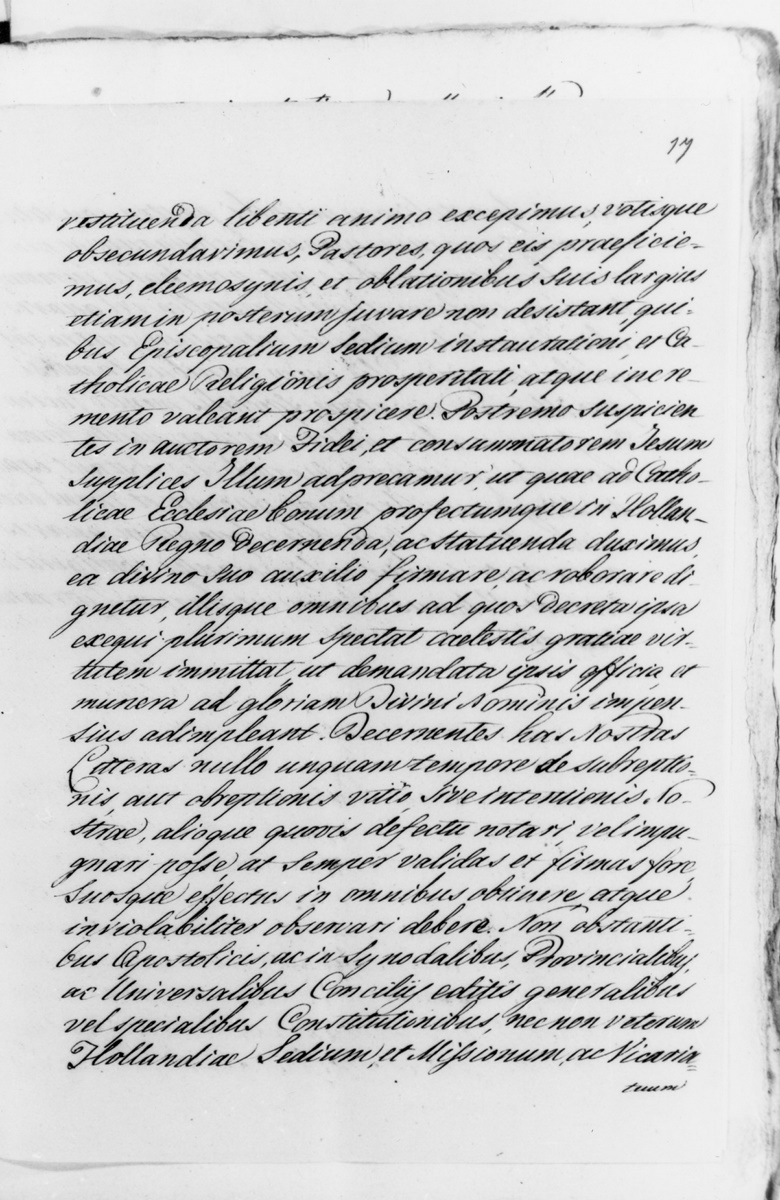 17
restituenda libenti animo excepimus, votisque
obsecundavimus, Pastores, quos eis praeficie-
mus, eleemosynis, et oblationibus suis largius
etiam in posterum juvare non desistant, qui-
bus Episcopalium Sedium instaurationi, et Ca-
tholicae Religionis prosperitati, atque incre-
mento valeant prospicere. Postremo suspicien
tes in auctorem Fidei, et consummatorem Jesum
supplices Illum adprecamur, ut quae ad Catho-
licae Ecclesiae bonum profectumque in Hollan-
diae Regno decernenda, ac statuenda duximus,
ea divino suo auxilio firmare, ac roborare di
gnetur, illisque omnibus ad quos Decreta ipsa
exequi plurimum spectat caelestis gratiae vir-
tutem immittat, ut demandata ipsis officia, et
munera ad gloriam Divini Nominis impen-
sius adimpleant. Decernentes has Nostras
Litteras nullo unquam tempore de subreptio-
nis, aut obreptionis vitio, sive intentionis No-
strae, alioque quovis defectu notari, vel impu-
gnari posse, at semper validas et firmas fore
suosque effectus in omnibus obtinere, atque
inviolabiliter observari debere. Non obstanti-
bus Apostolicis, ac in Synodalibus, Provincialibus,
ac Universalibus Conciliis editis generalibus
vel specialibus Constitutionibus, nec non veterum
Hollandiae Sedium, et Missionum, ac Vicaria=
tuum